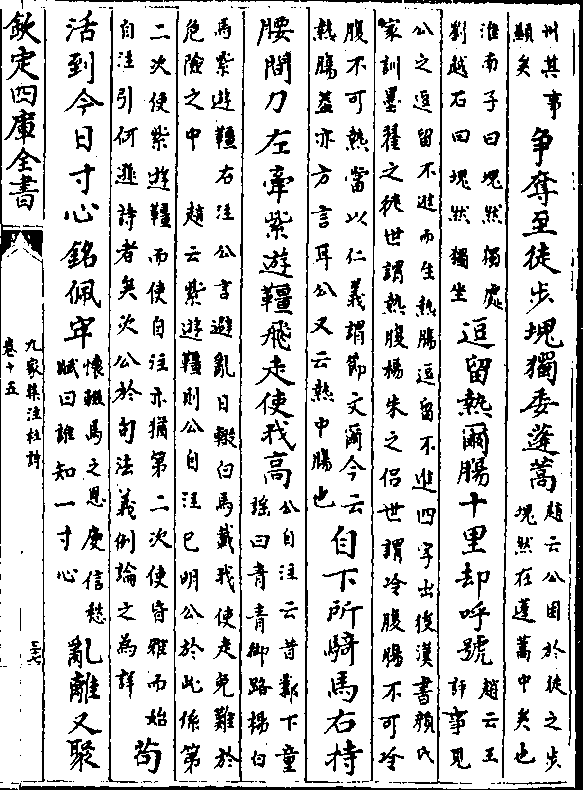 州其事顯矣爭奪至徒步塊獨委蓬蒿趙云公困於徒之步塊然在蓬蒿中矣也
淮南子曰塊然獨處劉越石曰塊然獨坐逗留熱爾腸十里却呼號趙云王評事見
公之逗留不進而生熱腸逗留不進四字出後漢書顏氏家訓墨翟之徒世謂熱腹楊朱之侶世謂冷腹腸不可冷
腹不可熱當以仁義謂節文爾今云熱腸蓋亦方言耳公又云熱中腸也自下所騎馬右持
腰間刀左牽紫遊韁飛走使我高公自注云昔鄴下童謠曰青青御路楊白
馬紫遊韁右注公言避亂日輟白馬載我使走免難於危險之中 趙云紫遊韁則公自注已明公於此係第
二次使紫遊韁而使自注亦猶第二次使皆雅而始自注引何遜詩者矣次公於句法義例論之為詳苟
活到今日寸心銘佩牢懷輟馬之恩庾信愁賦曰誰知一寸心亂離又聚
欽定四庫全書
九家集注杜詩
卷十五
三七